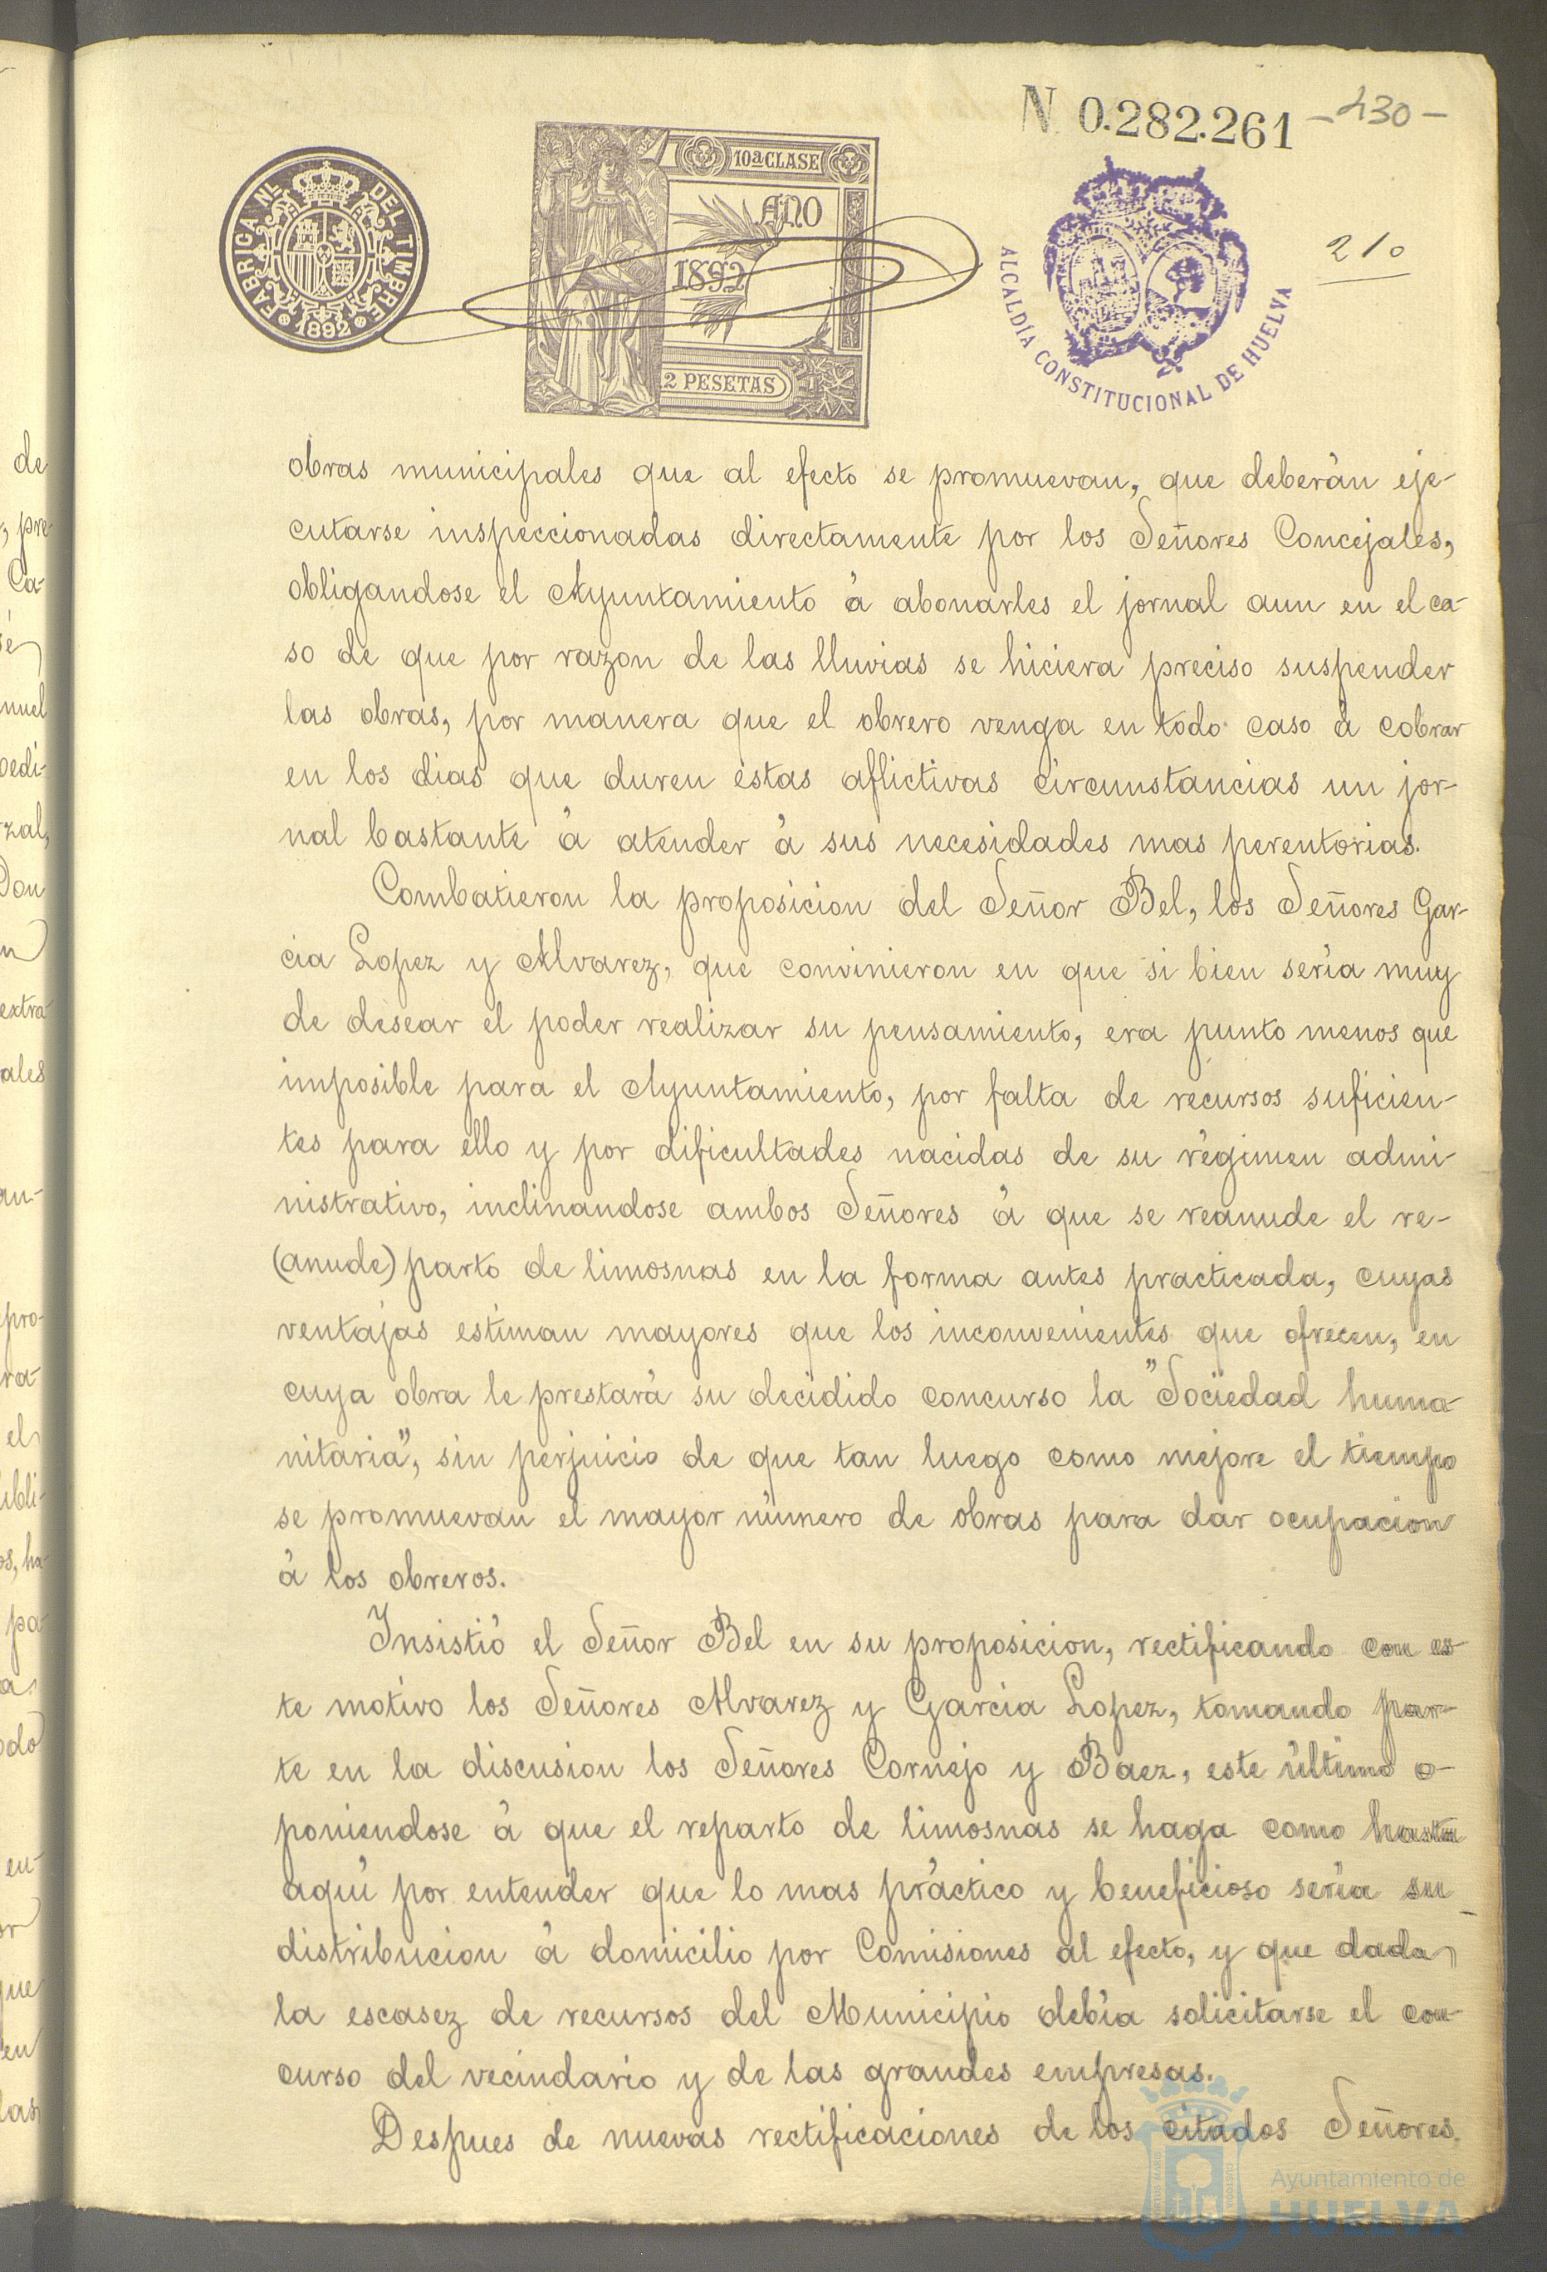 N 0.282.261 -430-
FABRICA NL DEL TIMBRE
1892
10ª CLASE
AÑO
1892
2 PESETAS
ALCALDÍA CONSTITUCIONAL DE HUELVA
210
obras municipales que al efecto se promuevan, que deberán eje-
cutarse inspeccionadas directamente por los Señores Concejales,
obligandose el Ayuntamiento á abonarles el jornal aun en el ca-
so de que por razon de las lluvias se hiciera preciso suspender
las obras, por manera que el obrero venga en todo caso á cobrar
en los dias que duren éstas aflictivas circunstancias un jor-
nal bastante á atender á sus necesidades mas perentorias.
Combatieron la proposicion del Señor Bel, los Señores Gar-
cia Lopez y Alvarez, que convinieron en que si bien sería muy
de desear el poder realizar su pensamiento, era punto menos que
imposible para el Ayuntamiento, por falta de recursos suficien-
tes para ello y por dificultades nacidas de su régimen admi-
nistrativo, inclinandose ambos Señores á que se reanude el re-
(anude) parto de limosnas en la forma antes practicada, cuyas
ventajas estiman mayores que los inconvenientes que ofrecen, en
cuya obra le prestará su decidido concurso la "Sociedad huma-
nitaria", sin perjuicio de que tan luego como mejore el tiempo
se promuevan el mayor número de obras para dar ocupacion
á los obreros.
Insistió el Señor Bel en su proposicion, rectificando con es-
te motivo los Señores Alvarez y García Lopez, tomando par-
te en la discusion los Señores Cornejo y Baez, este último o-
poniendose á que el reparto de limosnas se haga como hasta
aquí por entender que lo mas práctico y beneficioso sería su
distribucion á domicilio por Comisiones al efecto, y que dada
la escasez de recursos del Municipio debía solicitarse el con-
curso del vecindario y de las grandes empresas.
Despues de nuevas rectificaciones de los citados Señores.
Ayuntamiento de
HUELVA